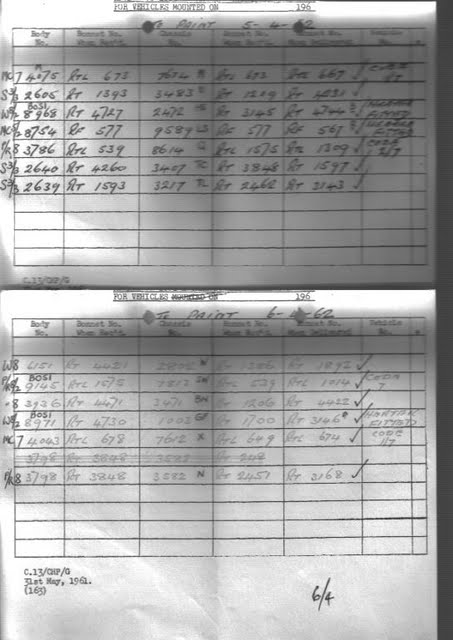 FOR VEHICLES MOUNTED ON 196
To PAINT 5-4-62
Body No. Bonnet No. When Rec'd. Chassis No. Bonnet No. When Rec'd. Bonnet No. When Delivered Vehicle No.
MC7 4075 RTL 673 7674 RTL 673 RTL 667 ✓ CODE
S3/3 2605 RT 1393 3483 RT 1209 RT 4231 ✓
BOSI
8968 RT 4727 2472 RT 3145 RT 4744 ✓ FITTED
8754 RF 577 9589 LS RF 577 RF 567 ✓ FITTED
P/R8 3786 RTL 539 8614 RTL 1575 RTL 1309 ✓ CODE
S3/3 2640 RT 4260 3407 TC RT 3848 RT 1597 ✓
S3/3 2639 RT 1593 3217 TL RT 2462 RT 3143 ✓
C.13/CHF/G
FOR VEHICLES MOUNTED ON 196
To PAINT 6-4-62
Body No. Bonnet No. When Rec'd. Chassis No. Bonnet No. When Rec'd. Bonnet No. When Delivered Vehicle No.
W8 6151 RT 4421 2802 W RT 1206 RT 1892 ✓
BOSI
RTL 1575 RTL 539 RTL 1014 ✓ CODE 7
8 3936 RT 4471 3471 BN RT 1206 RT 4422 ✓
BOSI
8971 RT 4730 1002 GF RT 1700 RT 3146 ✓ FITTED
MC7 4043 RTL 678 7612 X RTL 649 RTL 674 ✓ CODE
3798 RT 3848 3582 RT 248
P/R8 3798 RT 3848 3582 N RT 2451 RT 3168 ✓
C.13/CHF/G
31st May, 1961.
(163)
6/4